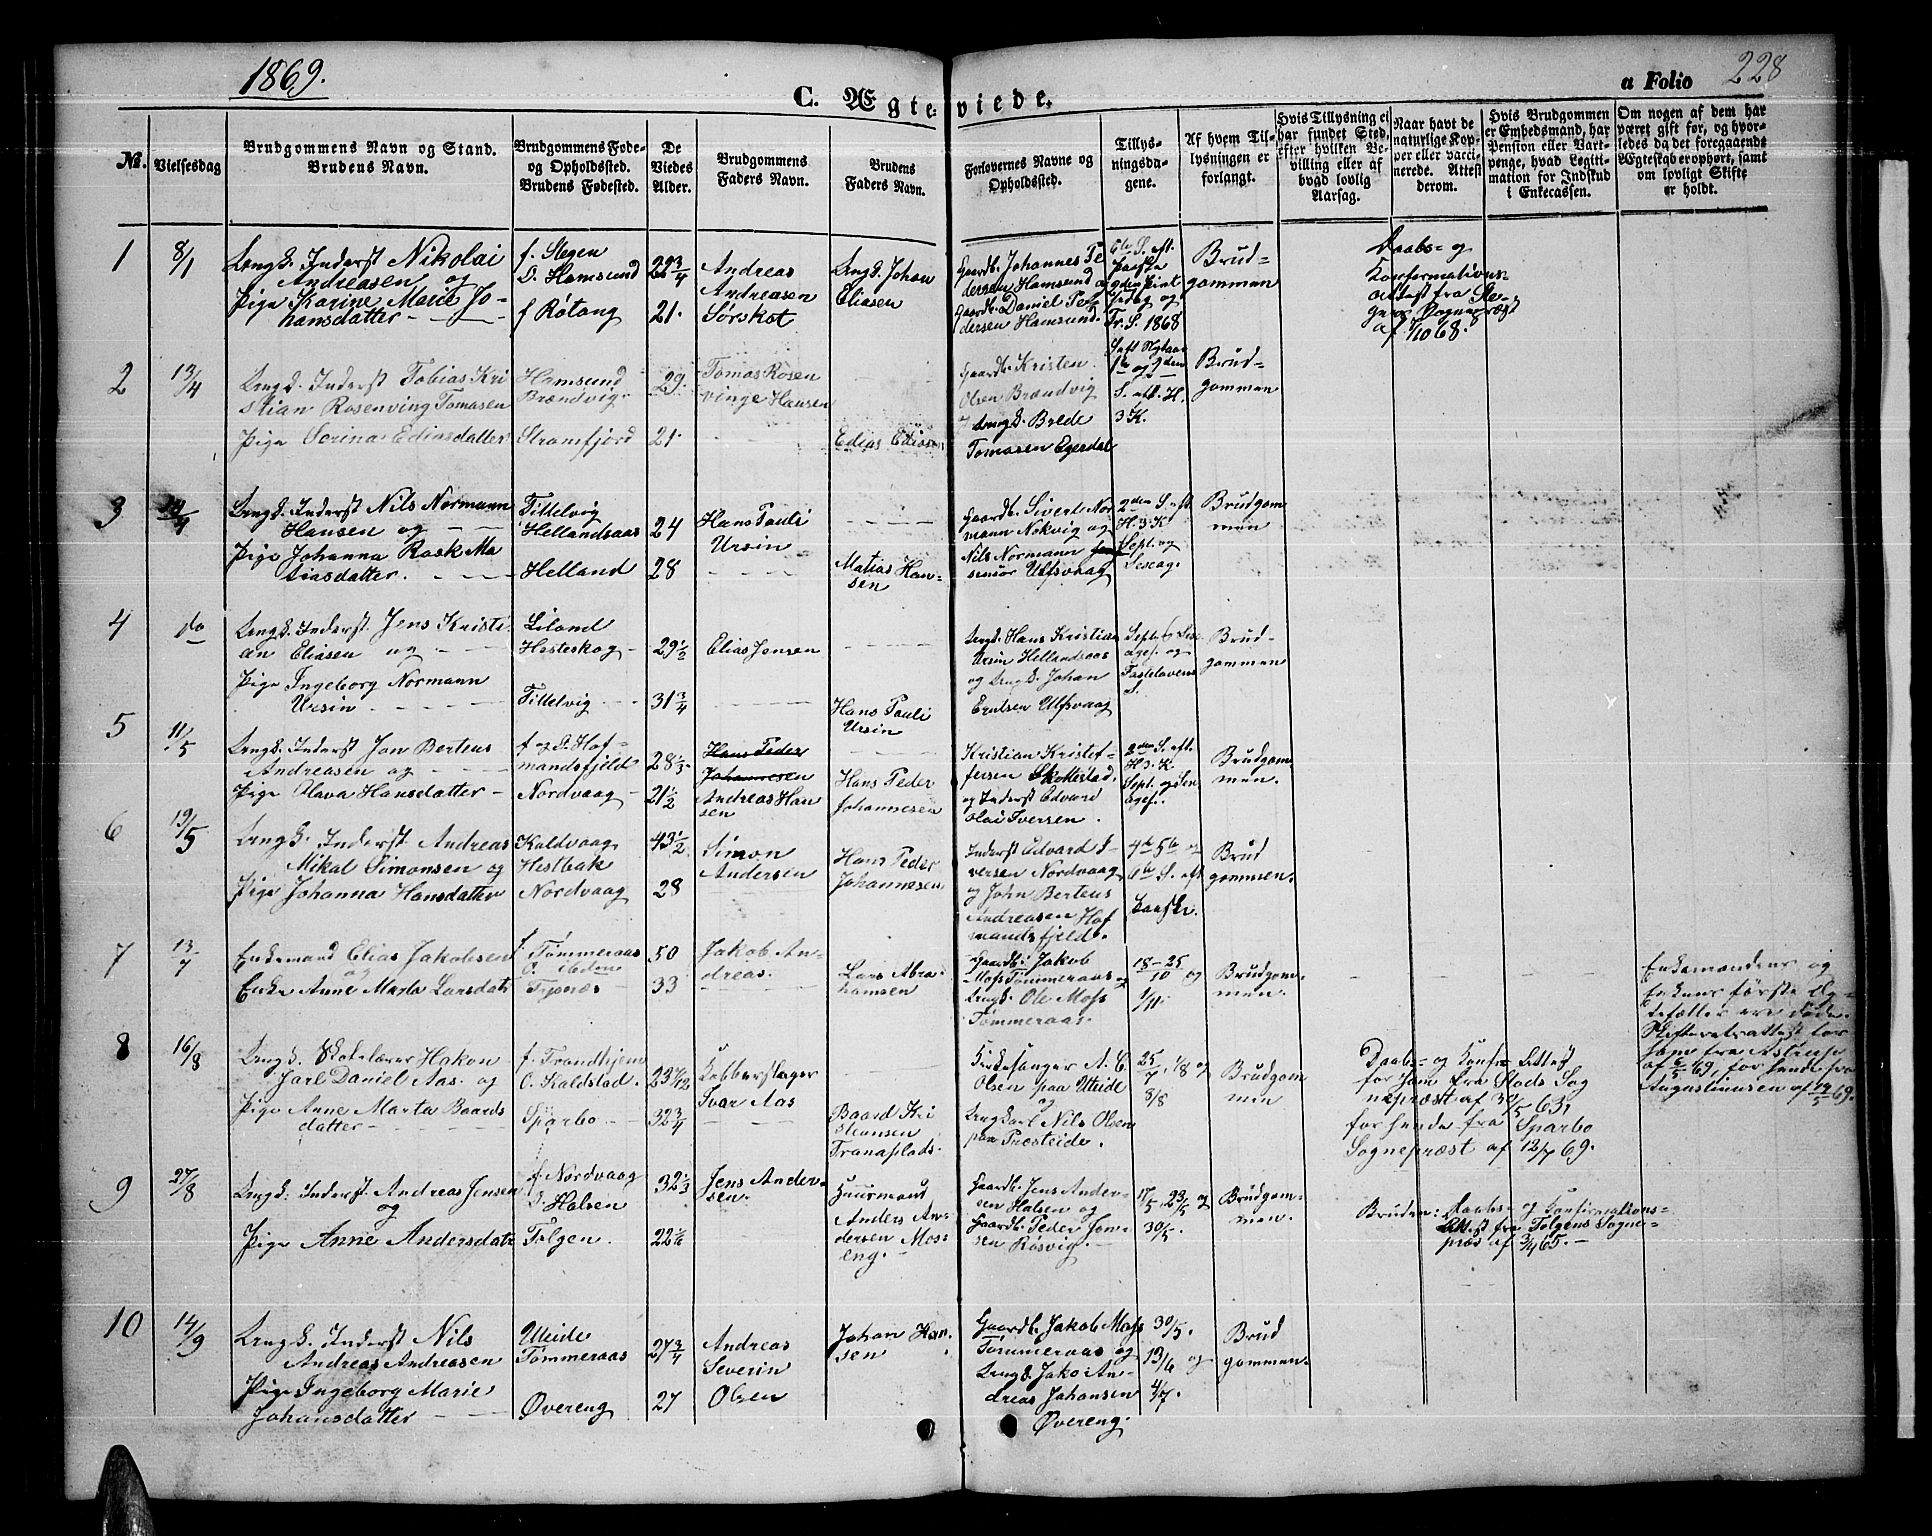 1869.
C. Ægteviede.
a Folio 228
No.
Vielsesdag
Brudgommens Navn og Stand.
Brudens Navn.
Brudgommens Føde-
og Opholdssted.
Brudens Fødested.
De
Viedes
Alder.
Brudgommens
Faders Navn.
Brudens
Faders Navn.
Forlovernes Navne og
Opholdssted.
Tillys-
ningsda-
gene.
Af hvem Til-
lysningen er
forlangt.
Hvis Tillysning ei
har fundet Sted,
efter hvilken Be-
villing eller af
hvad lovlig
Aarsag.
Naar havt de
naturlige Kop-
per eller vacci-
nerede. Attest
derom.
Hvis Brudgommen
er Embedsmand, har
Pension eller Vart-
penge, hvad Legiti-
mation for Indskud
i Enkecassen.
Om nogen af dem har
været gift før, og hvor-
ledes da det foregaaende
Ægteskab er ophørt, samt
om lovligt Skifte
er holdt.
1
8/1
Ungk. Inderst Nikolai
Andreasen og
Pige Karine Marie Jo-
hansdatter
f. Stegen
O. Hamsund
f Røtang
22 3/4
21.
Andreas
Andreasen
Sørskot
Ungk. Johan
Eliasen
Gaardb. Johannes Pe
dersen Hamsund og
Gaardb. Daniel Pe-
dersen Hamsund.
6te S. eft.
Paaske
2den Pint
sedag og
Tr. S. 1868
Brud-
gommen
Daabs- og
Konfirmations-
attest fra Ste-
gens Sognepræst
af 1/10 68.
2
13/4
Ungk. Inderst Tobias Kri
stian Rosenving Tomasen
Pige Sorina Ediasdatter
Hamsund
Brændvig.
Stramfjord
29.
21.
Tomas Rosen
vinge Hansen
Edias Ediasen
Gaardb. Kristen
Olsen Brændvig
Ungk. Brede
Tomasen Egerdal
S. eft Nytaar
1te og 2den
S. eft. H.
3 K.
Brud-
gommen
3
Ungk. Inderst Nils Normann
Hansen og
Pige Johanna Rask Ma
tiasdatter.
Tittelvig
Hellandsaas
Helland
24
28
Hans Pauli
Ursin
Matias Han-
sen
Gaardb. Sivert Nor
mann Nokvig og
Nils Normann Jen
senior Ulfsvaag
2den S. eft
H. 3. K
Sept. og
Sexag.
Brudgom
men
4
do
Ungk. Inderst Jens Kristi
an Eliasen og
Pige Ingeborg Normann
Ursin
Liland
Hesteskog
Tittelvig
29 1/2
31 3/4
Elias Jensen
Hans Pauli
Ursin
Ungk. Hans Kristian
Ursin Hellandsaas
og Ungk. Johan
Evensen Ulfsvaag
Fastelavens
S.
Brud-
gommen
5
11/5
Ungk. Inderst Jon Berteus
Andreasen og
Pige Olava Hansdatter
f og O. Hof-
mandsfjeld
Nordvaag
28 1/3
21 1/2
Hans Peder
Johannesen
Andreas Han
sen
Hans Peder
Johannesen
Kristian Kristof-
fersen Skottestad
og Inderst Edvard
Olai Iversen.
2den S. eft.
H. 3. K.
Sept. og Sex
ages.
Brudgom
men.
6
19/5
Ungk. Inderst Andreas
Mikal Simonsen og
Pige Johanna Hansdatter
Kaldvaag
Hestbak
Nordvaag
43 1/2
28
Simon
Andersen
Hans Peder
Johannesen
Inderst Edvard I-
versen Nordvaag
og John Berteus
Andreasen Hof
mandsfjeld.
4de 5te og
6te S. eft
Paaske.
Brud
gommen.
7
13/7
Enkemand Elias Jakobsen
og
Enke Anne Marta Larsdatr
f. Tømmeraas
Tysnæs
50
33
Jakob An-
dreas.
Lars Abra
hamsen
Gaardb. Jakob
Moss Tømmeraas og
Ungk. Ole Moss
Tømmeraas.
18 - 25
10 og
1/11.
Brudgom-
men.
Enkemandens og
Enkens første Æg-
tefæller ere døde.
Skifteretsattest for
ham fra
af 6/5 69, for hende fra
Augustinusen af 12/5 69.
8
16/8
Ungk. Skolelærer Hakon
Jarl Daniel Aas. og
Pige Anne Marta Baards
datter
f. Trondhjem
O. Kaldstad.
Sparbo
23 1/12
32 3/4
Kobberslager
Ivar Aas
Baard Kri
stiansen
Tranaplads.
Kirkesanger A. C.
Olsen paa Uteide
og
Ungkarl Nils Olsen
paa Presteide.
25/7, 1/8 og
8/8
Brudgom
men
Daabs- og Konfr. Attest
for ham fra Stods Sog
nepræst af 30/5 63,
for hende fra Sparbo
Sognepræst af 12/7 69.
9
27/8
Ungk: Inderst Andreas Jensen
og
Pige Anne Andersdatr
f. Nordvaag
O. Halsen
Tolgen.
32 1/3
22 1/6
Jens Ander-
sen.
Huusmand
Anders An-
dersen Mos-
eng.
Gaardb. Jens Ander-
sen Halsen og
Gaardb. Peder Jen-
sen Røsvig.
17/5, 23/5 og
30/5.
Brudgom-
men.
Bruden: Daabs- og Konfirmations-
attest fra Tolgens Sogne-
præs af 3/4 65.
10
14/9
Ungk. Inderst Nils
Andreas Andreasen
Pige Ingeborg Marie
Johansdatter
Uteide
Tømmeraas
Øvereng
27 3/4
27
Andreas
Severin
Olsen
Johan Han-
sen
Gaardb. Jakob Moss
Tømmeraas og
Ungk. Jako An-
dreas Johansen
Øvereng.
30/5.
13/6 og
4/7.
Brud
gommen.